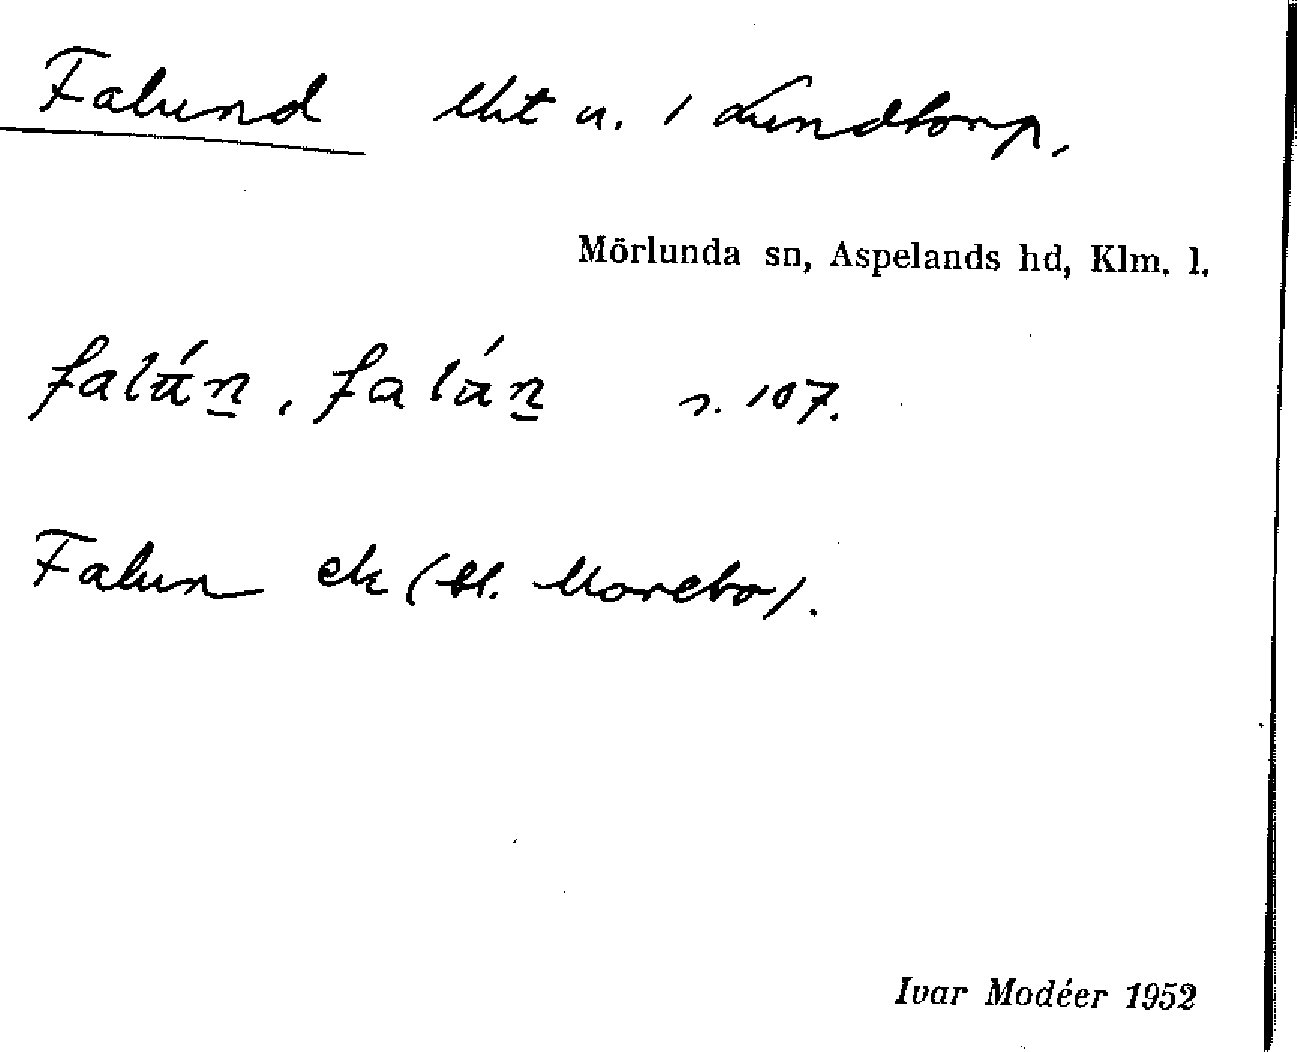 Falund lht u. / Lundtorp.
Mörlunda sn, Aspelands hd, Klm. l.
falún, falún s. 107.
Falun ek (bl. Morebo).
Ivar Modéer 1952